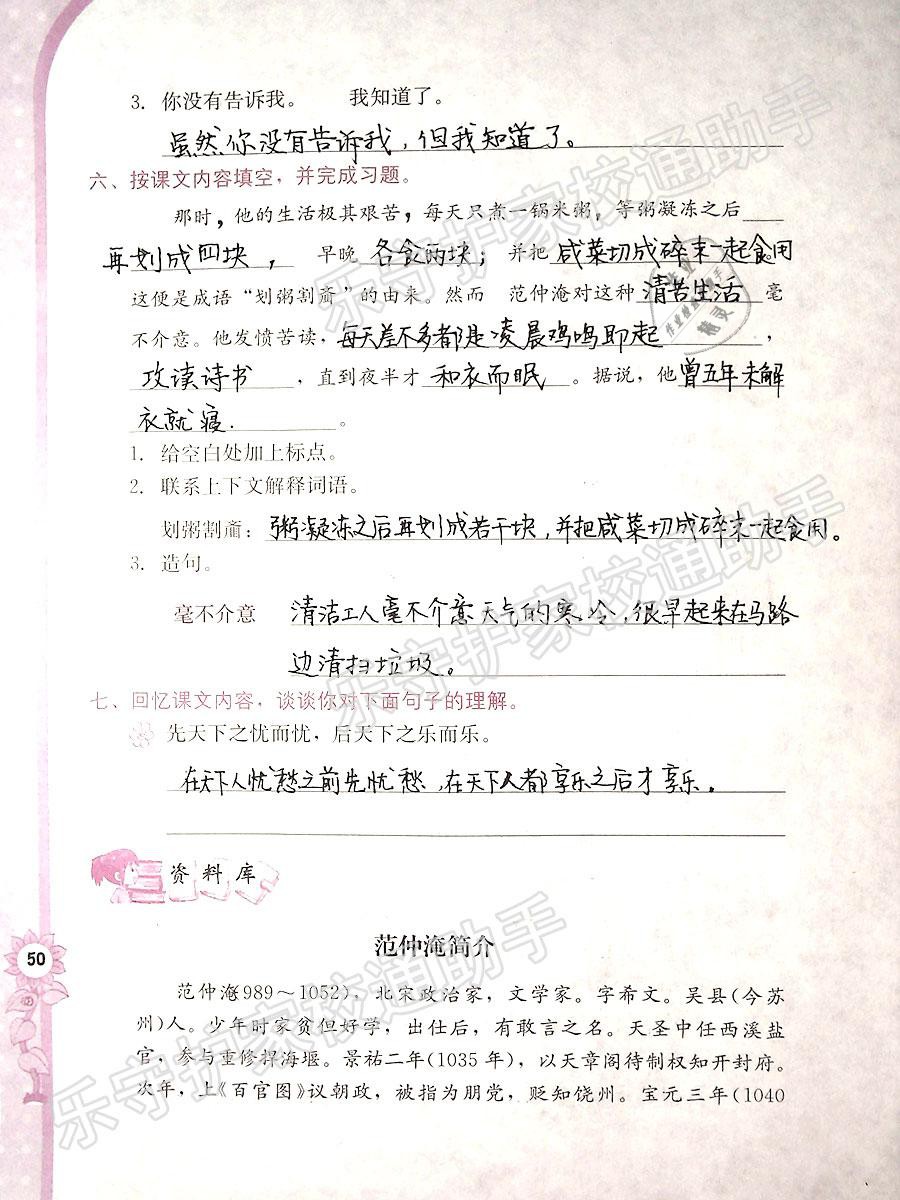 3. 你没有告诉我。 我知道了。
虽然你没有告诉我，但我知道了。
六、按课文内容填空，并完成习题。
那时，他的生活极其艰苦，每天只煮一锅米粥，等粥凝冻之后
再划成四块， 早晚 各食两块； 并把 咸菜切成碎末一起食用
这便是成语“划粥割齑”的由来。然而 范仲淹对这种 清苦生活 毫
不介意。他发愤苦读，每天差不多都是凌晨鸡鸣即起，
攻读诗书，直到夜半才 和衣而眠。据说，他曾五年未解
衣就寝. 。
1. 给空白处加上标点。
2. 联系上下文解释词语。
划粥割齑：粥凝冻之后再划成若干块，并把咸菜切成碎末一起食用。
3. 造句。
毫不介意 清洁工人毫不介意天气的寒冷，很早起来在马路
边清扫垃圾。
七、回忆课文内容，谈谈你对下面句子的理解。
先天下之忧而忧，后天下之乐而乐。
在天下人忧愁之前先忧愁，在天下人都享乐之后才享乐。
资料库
范仲淹简介
50
范仲淹989～1052)，北宋政治家，文学家。字希文。吴县(今苏
州)人。少年时家贫但好学，出仕后，有敢言之名。天圣中任西溪盐
官，参与重修捍海堰。景祐二年(1035年)，以天章阁待制权知开封府。
次年，上《百官图》议朝政，被指为朋党，贬知饶州。宝元三年(1040
乐守护家校通助手
乐守护家校通助手
乐守护家校通助手
作业精灵